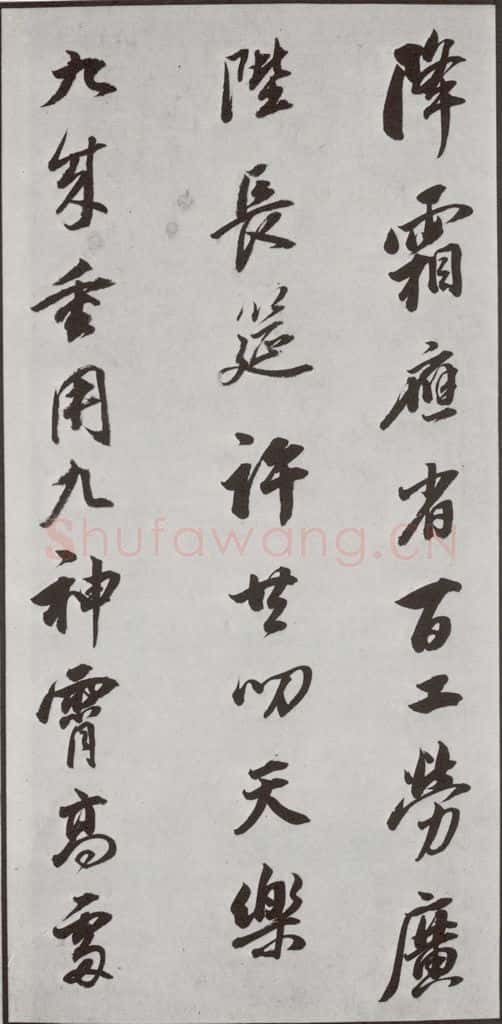 降霜應省百工勞廣
陛長筵許共叨天樂
九成重用九神霄高處
Shufawang.CN